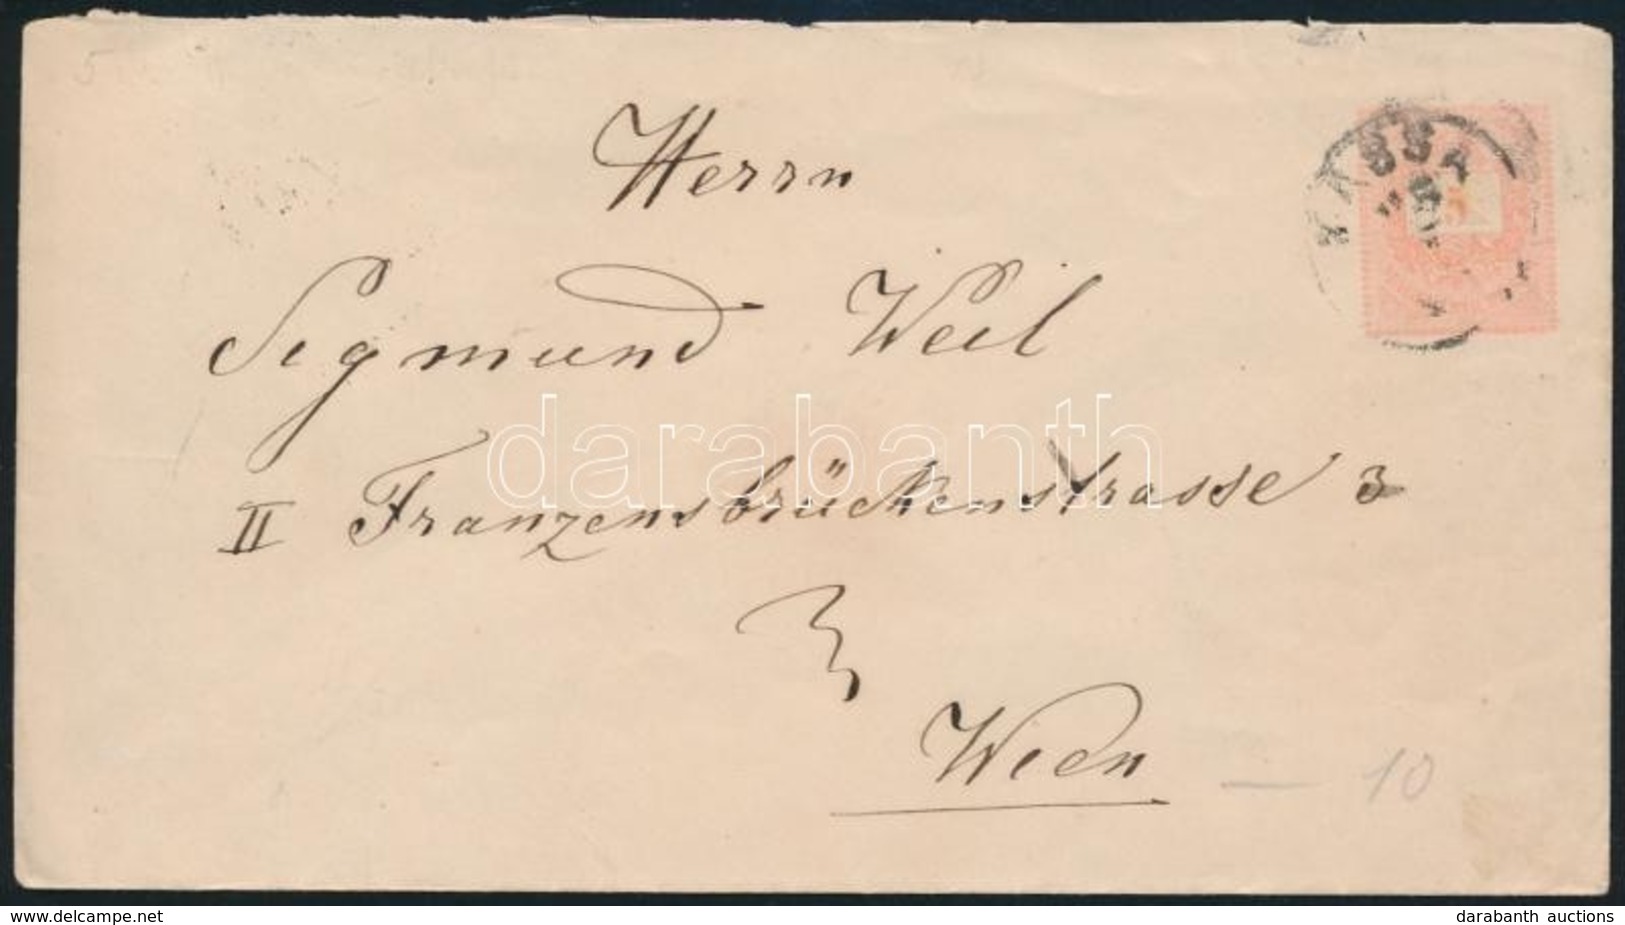 5
Herrn
KASSA
Sigmund Weil
darabanth
II Franzensbrückenstrasse 3
Wien
10
www.delcampe.net
darabanth auctions